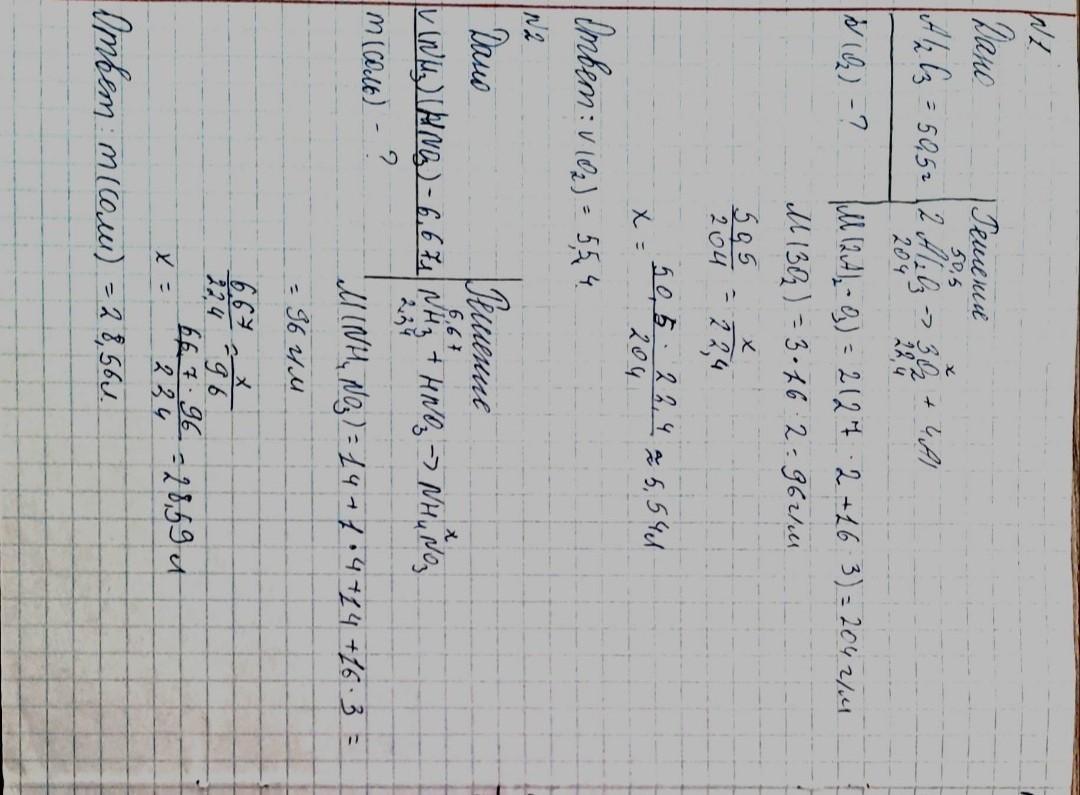 N1
Дано
Al₂O₃ = 50,5г
V(O₂) - ?
Решение
50,5 x
2Al₂O₃ -> 3O₂ + 4Al
204 22,4
M(2Al₂-O₃) = 2(27·2+16·3) = 204 г/м
M(3O₂) = 3·16·2 = 96 г/м
50,5/204 = x/22,4
x = 50,5·22,4/204 ≈ 5,54л
Ответ: V(O₂) = 5,54
N2
Дано
V(NH₃)(HNO₃) - 6,67л
m(соль) - ?
Решение
6,67 x
NH₃ + HNO₃ -> NH₄NO₃
22,4
M(NH₄NO₃) = 14+1·4+14+16·3 =
= 96 г/м
6,67/22,4 = x/96
x = 6,67·96/22,4 = 28,59 л
Ответ: m(соли) = 28,56л